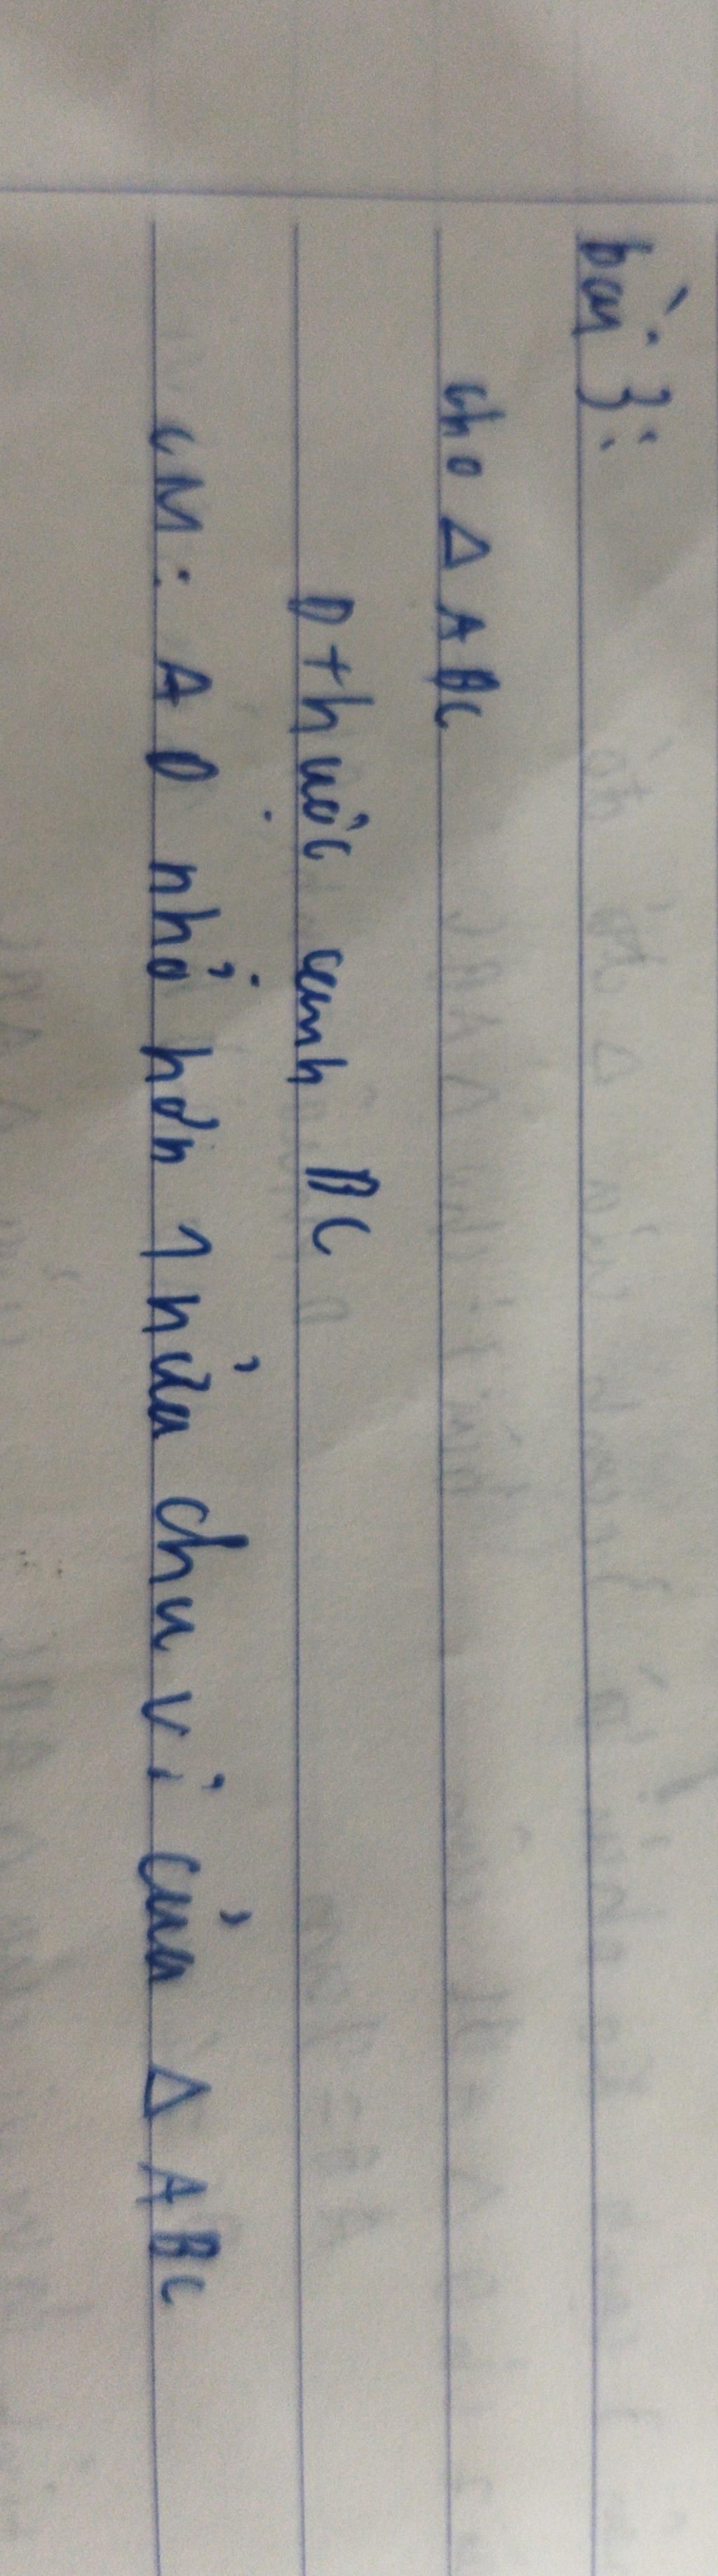 bài 3:
cho Δ ABC
D thuộc cạnh BC
CM: AD nhỏ hơn 1 nửa chu vi của Δ ABC